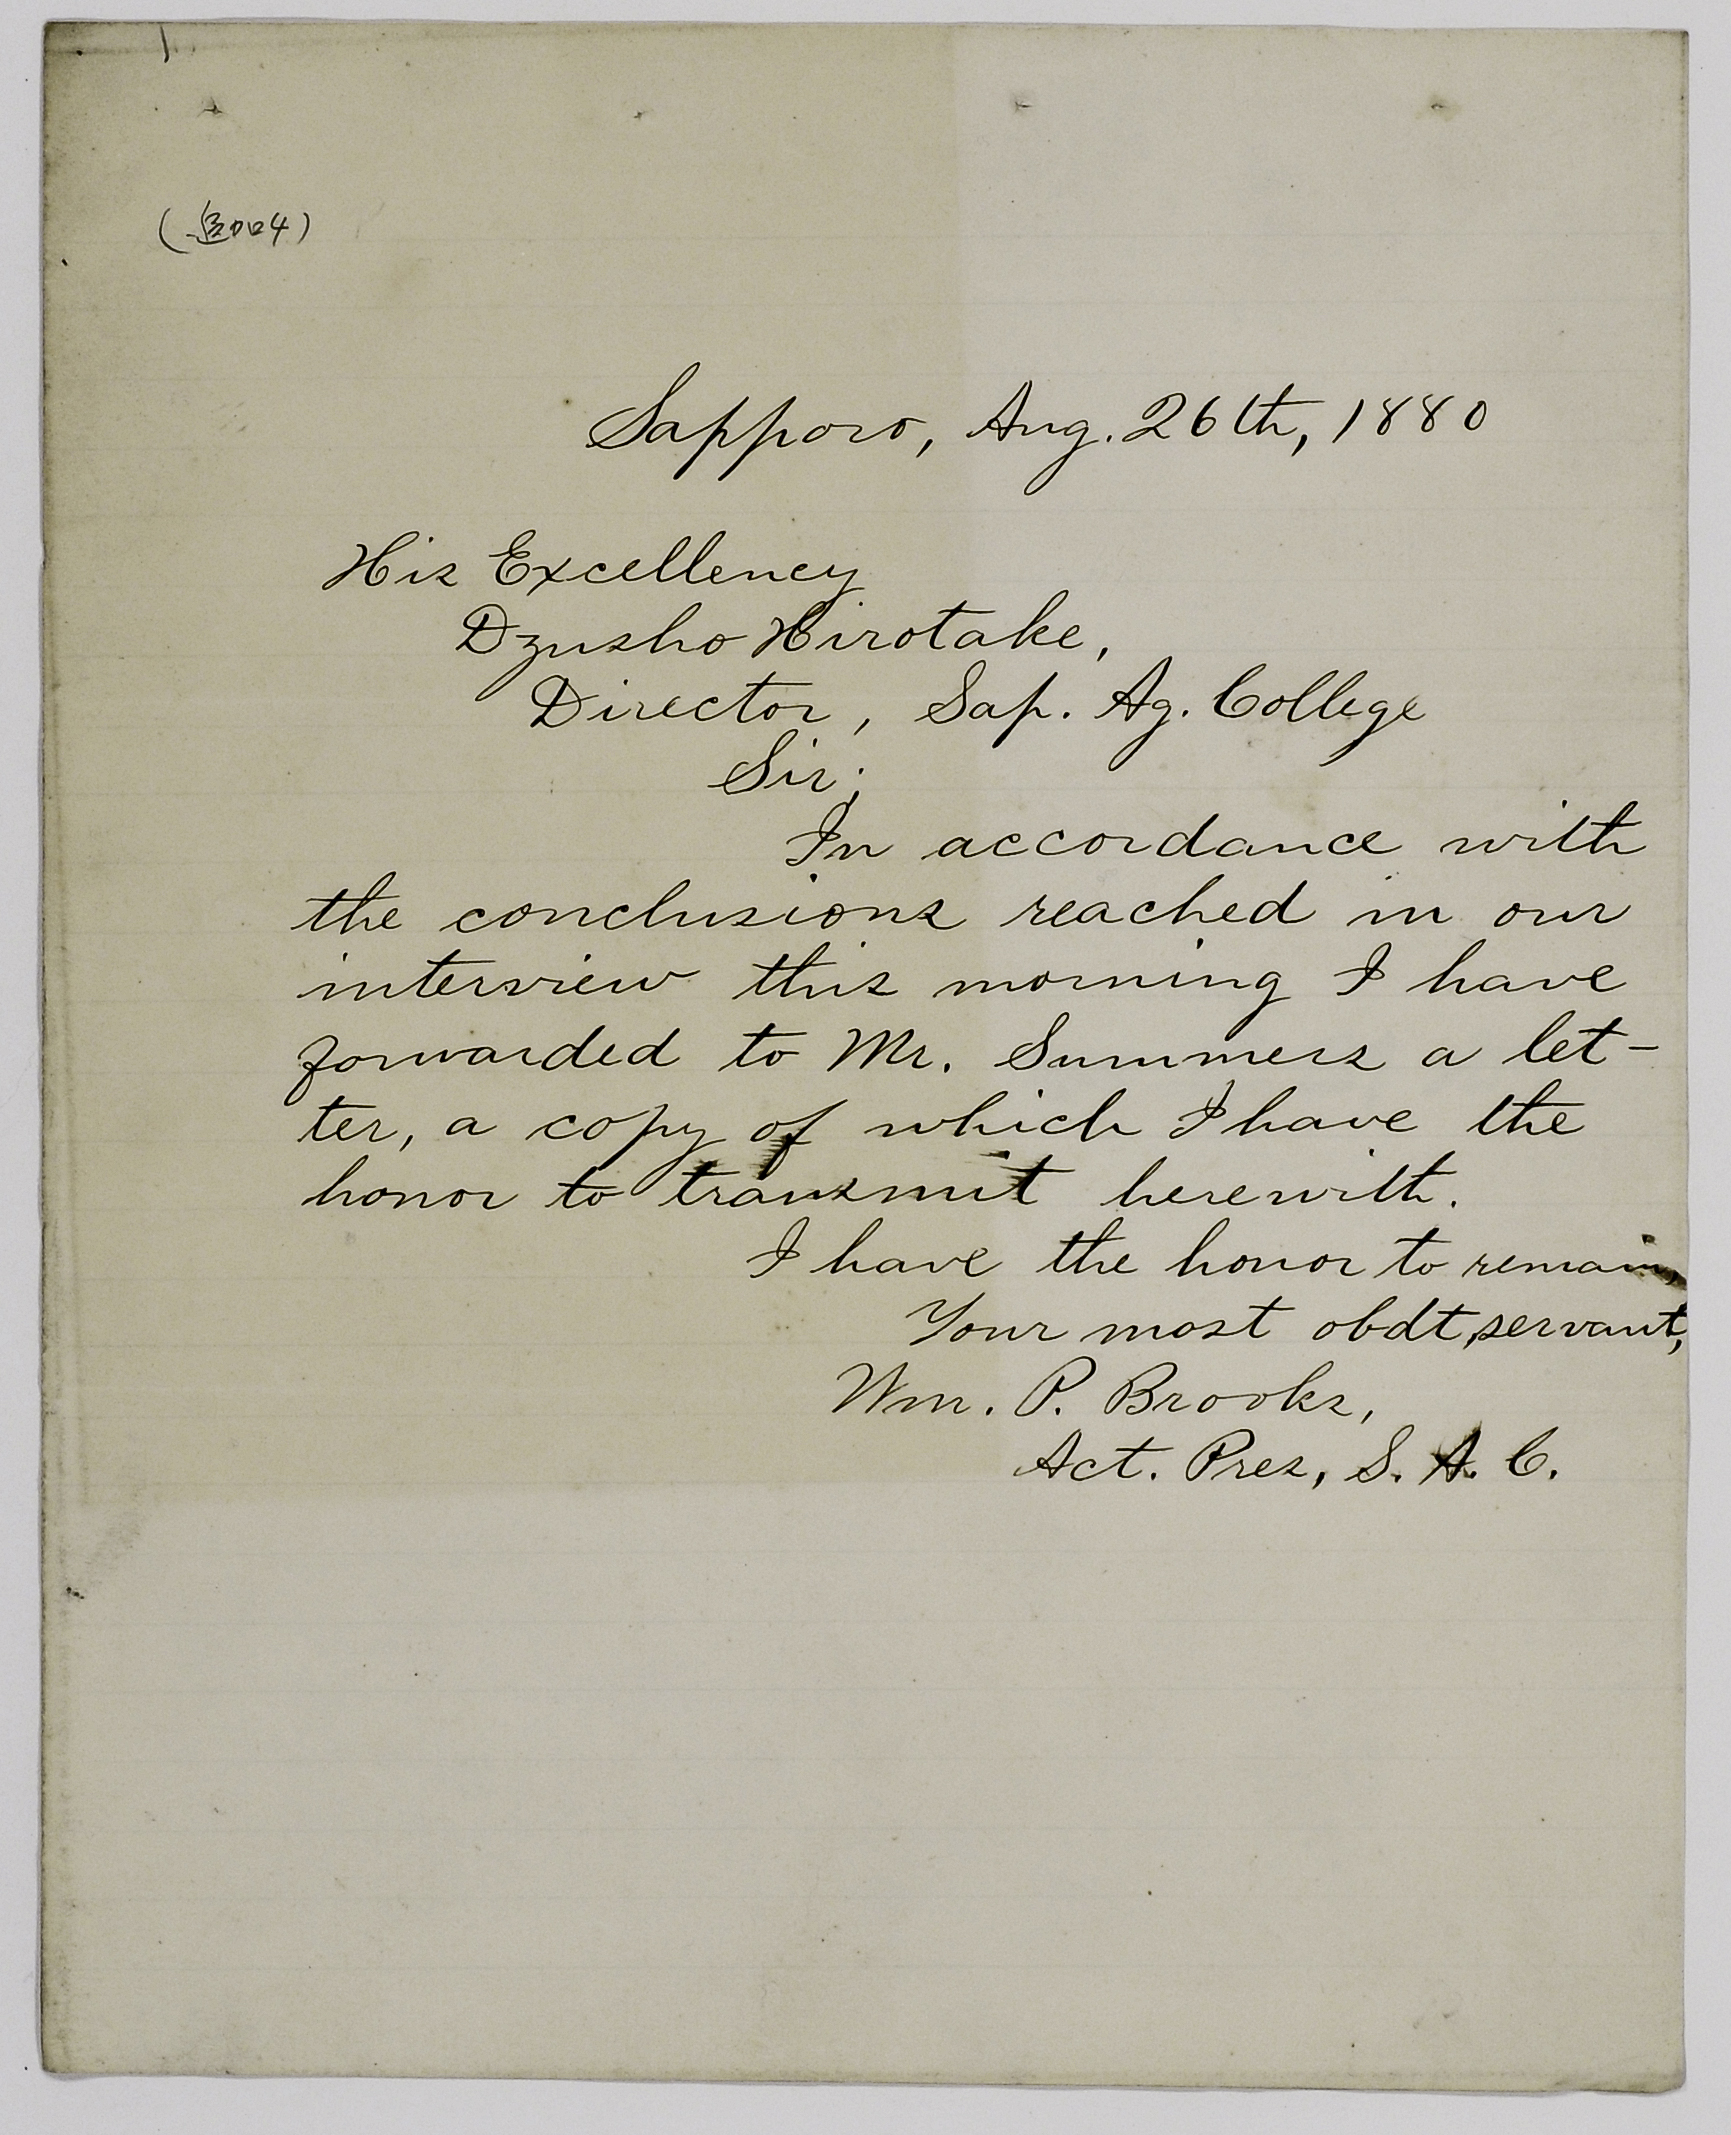 (追加04)
Sapporo, Aug. 26th, 1880
His Excellency
Dzusho Hirotake,
Director, Sap. Ag. College
Sir;
In accordance with
the conclusions reached in our
interview this morning I have
forwarded to Mr. Summers a let-
ter, a copy of which I have the
honor to transmit herewith.
I have the honor to remain,
Your most obdt, servant,
Wm. P. Brooks,
Act. Pres, S. A. C.